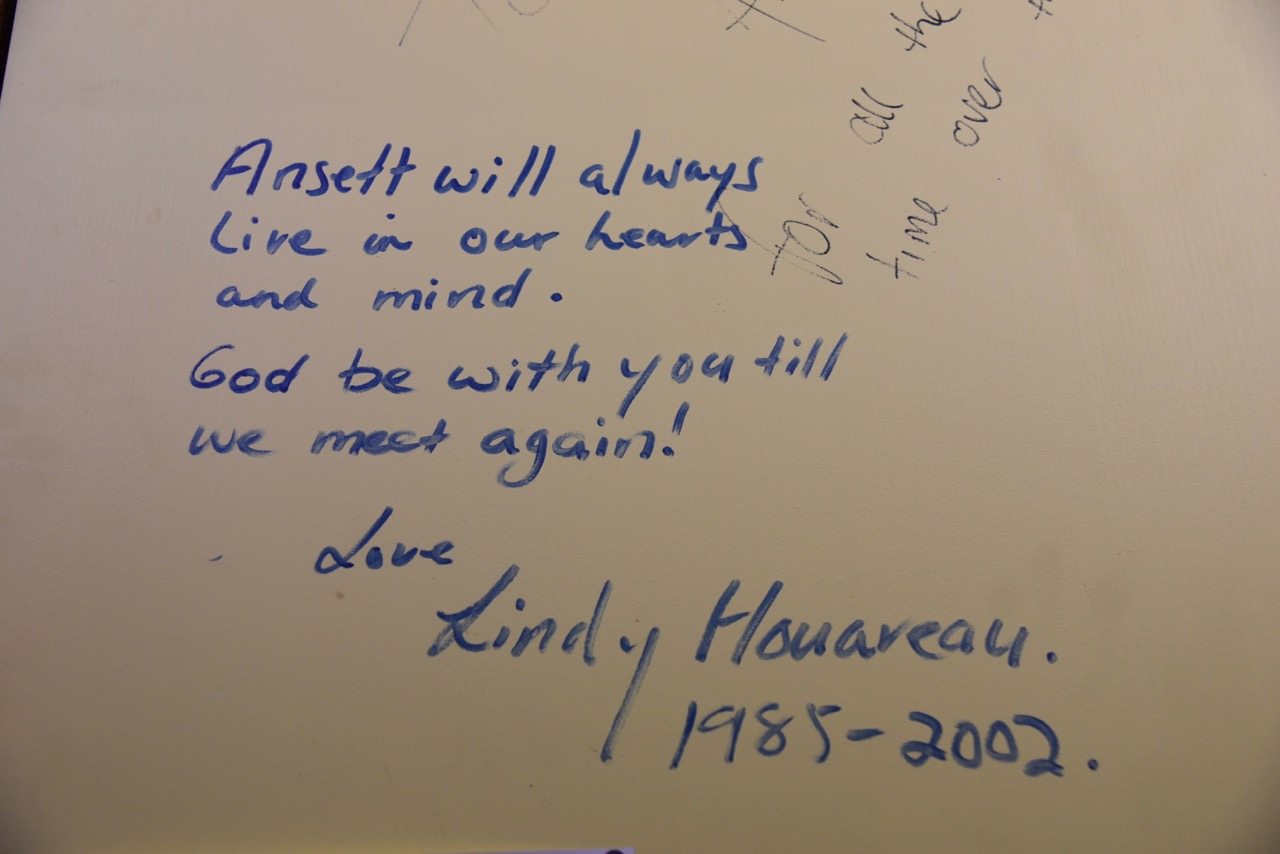 Ansett will always
live in our hearts
and mind.
God be with you till
we meet again!
Love
Lindy Houareau.
1985-2002.
for all the
time over